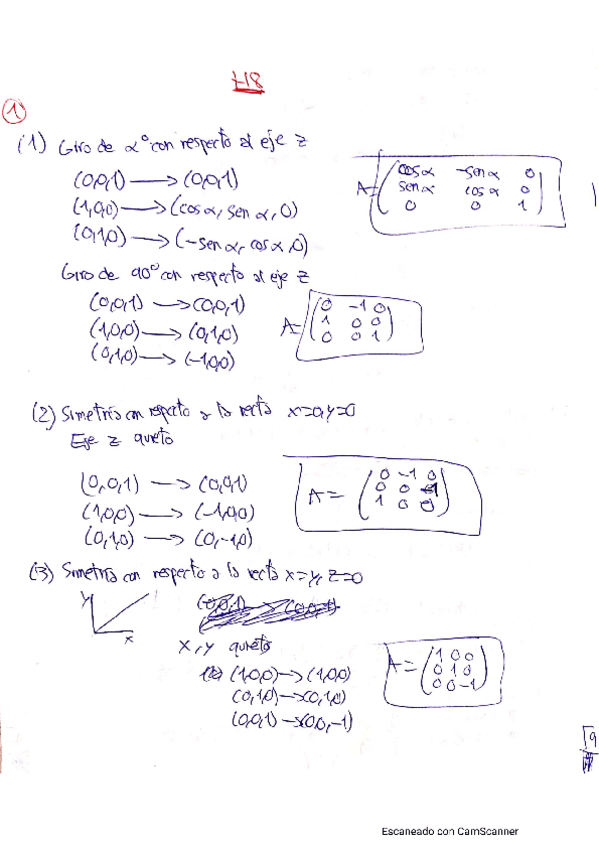 H8
1
(1) Giro de α° con respecto al eje z
(0,0,1) → (0,0,1)
(1,0,0) → (cos α, sen α, 0)
(0,1,0) → (-sen α, cos α, 0)
A = ( cos α -sen α 0
sen α cos α 0
0 0 1 )
Giro de 90° con respecto al eje z
(0,0,1) → (0,0,1)
(1,0,0) → (0,1,0)
(0,1,0) → (-1,0,0)
A = ( 0 -1 0
1 0 0
0 0 1 )
(2) Simetría con respecto a la recta x=0, y=0
Eje z quieto
(0,0,1) → (0,0,1)
(1,0,0) → (-1,0,0)
(0,1,0) → (0,-1,0)
A = ( 0 -1 0
0 0 -1
1 0 0 )
(3) Simetría con respecto a la recta x=y, z=0
y
x
x, y quieto
(1,0,0) → (1,0,0)
(0,1,0) → (0,1,0)
(0,0,1) → (0,0,-1)
A = ( 1 0 0
0 1 0
0 0 -1 )
Escaneado con CamScanner